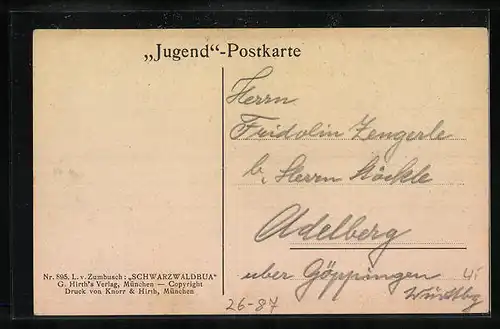 „Jugend“-Postkarte
Herrn
Fridolin Zengerle
b. Herrn Stöckle
Adelberg
über Göppingen
Württbg
Nr. 895. L. v. Zumbusch: „SCHWARZWALDBUA“
G. Hirth's Verlag, München — Copyright
Druck von Knorr & Hirth, München
26-87